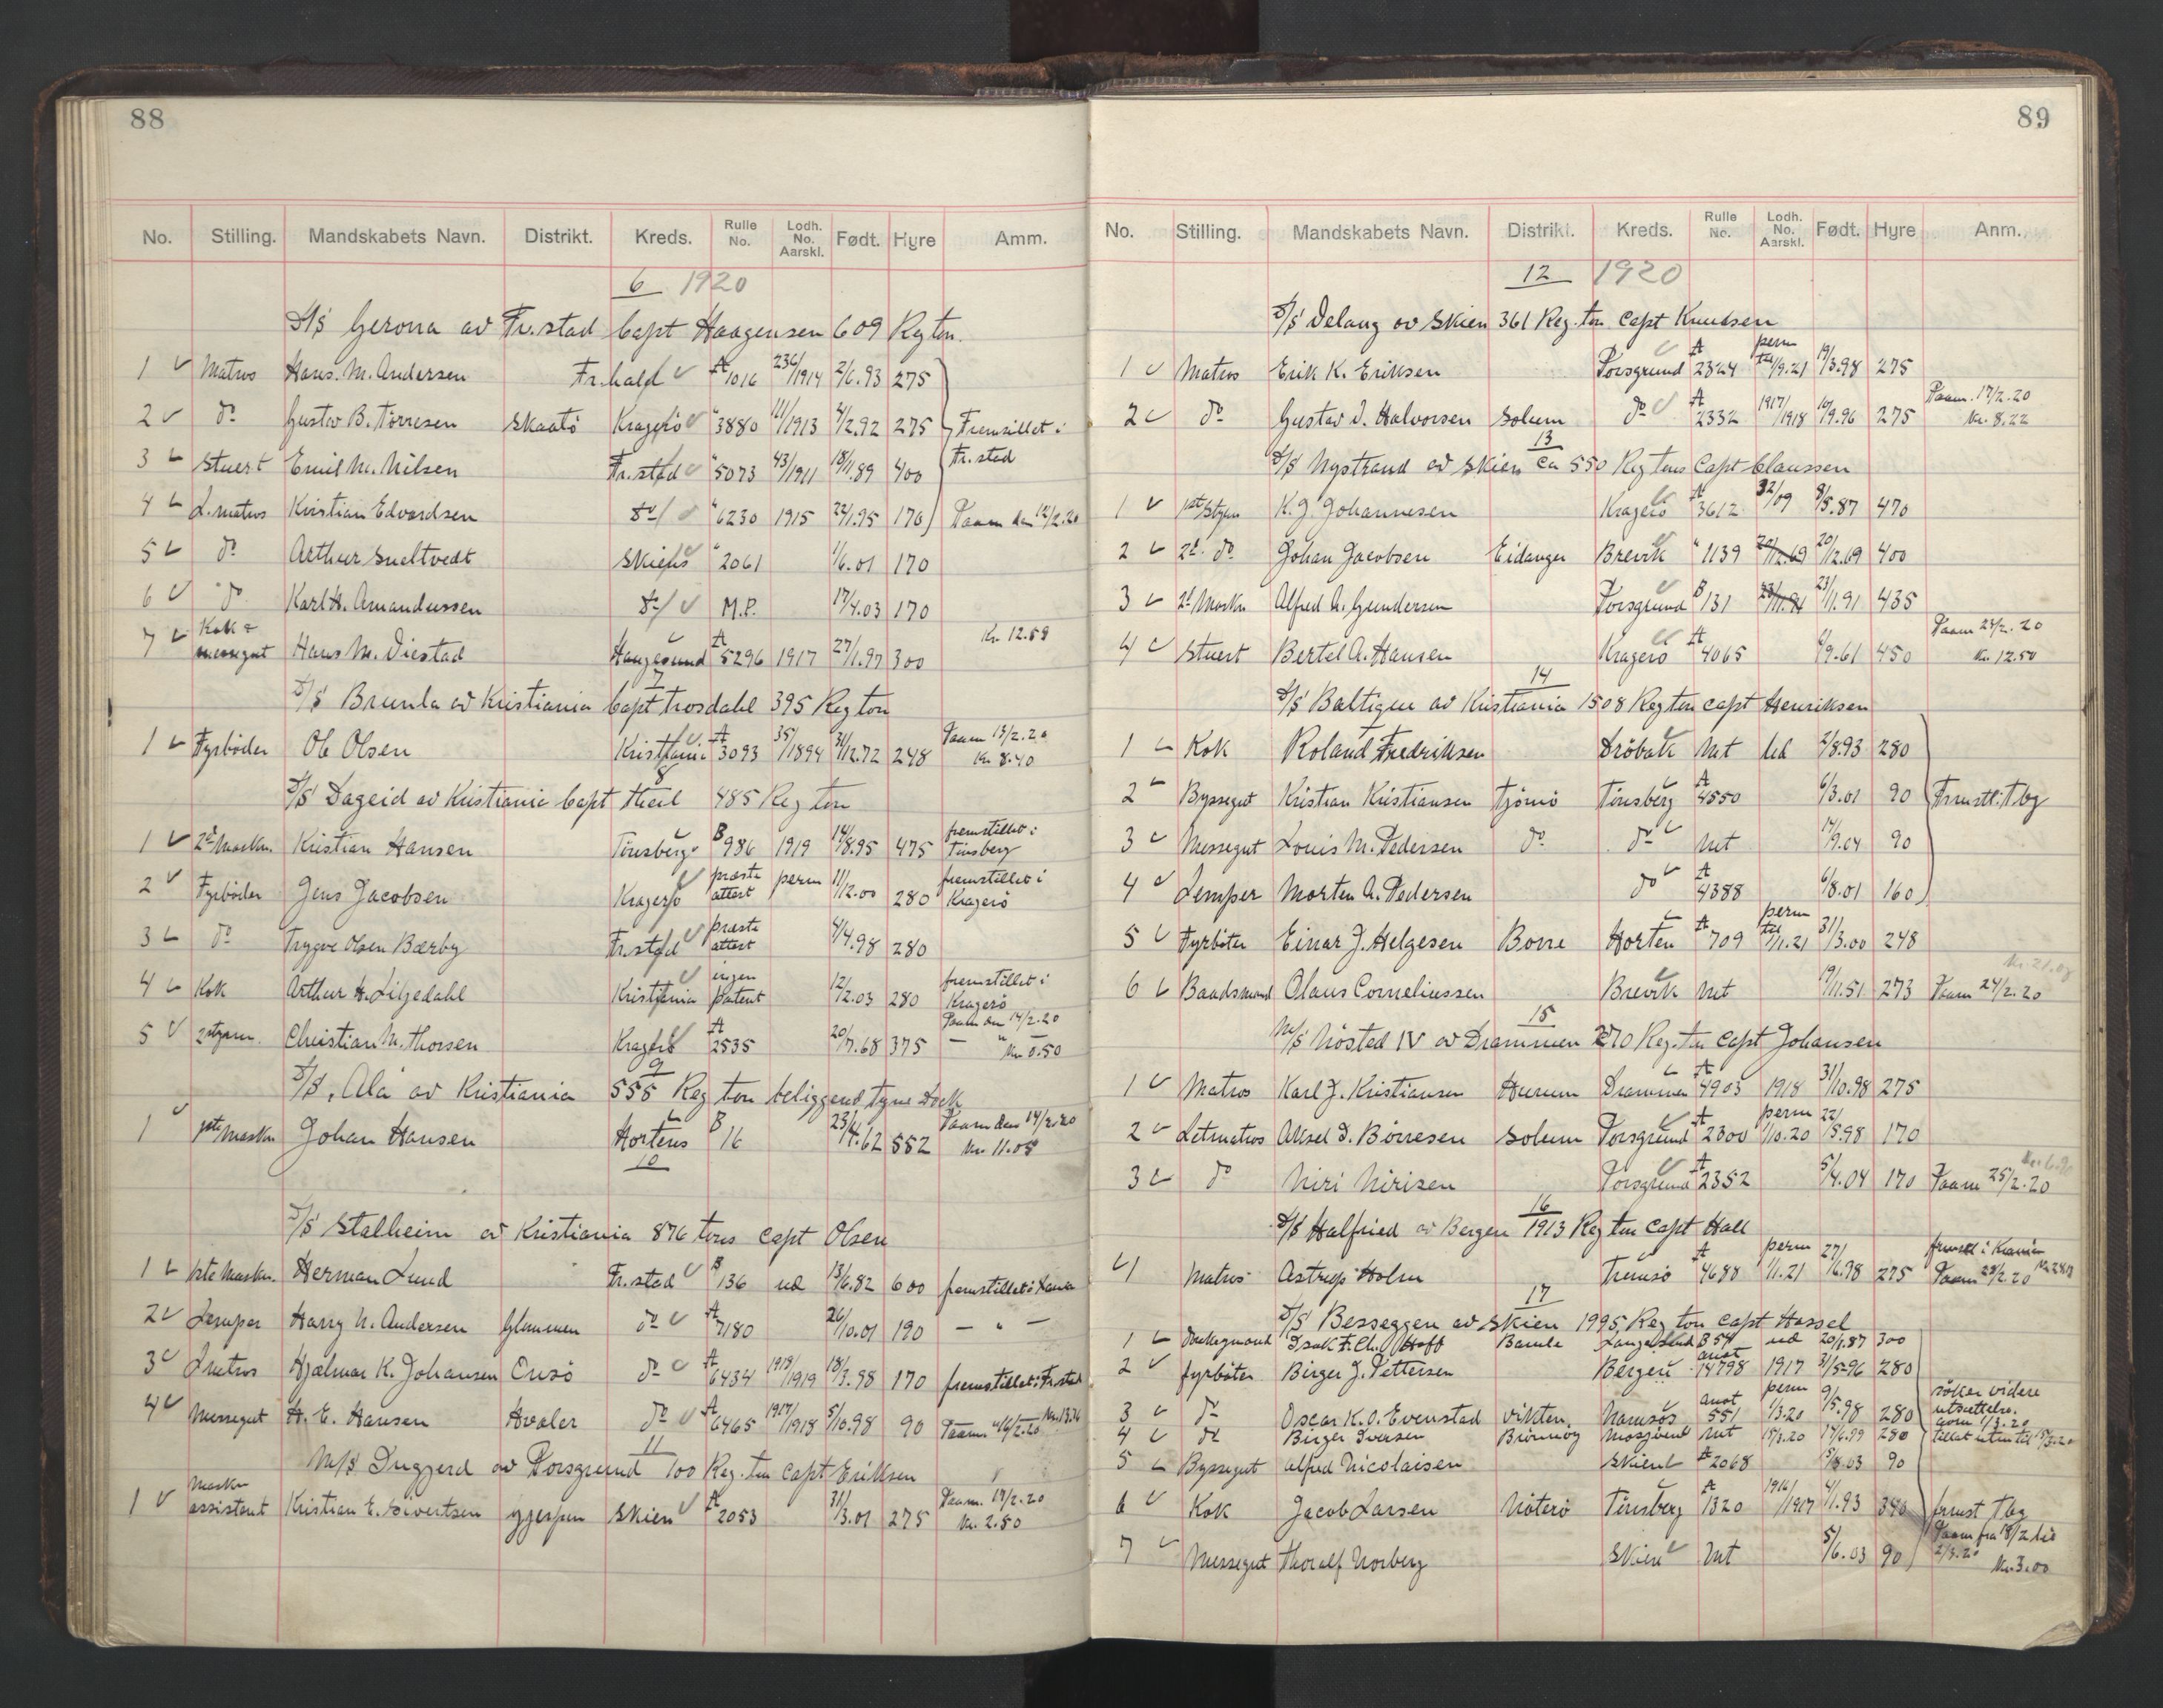 88
No. Stilling. Mandskabets Navn. Distrikt. Kreds. Rulle No. Lodh. No. Aarskl. Født. Hyre Amm.
6 1920
S/S Gerona av Fr.stad Capt Haagensen 609 Reg ton.
1 Matros Hans. M. Andersen Fr.hald A 1016 236/1914 2/6.93 275
2 do Gustav B. Tørresen Skaatö Kragerö " 3880 111/1913 4/2.92 275 Fremstillet i
3 Stuert Emil M. Nilsen Fr.stad " 5073 43/1911 18/11.89 400 Fr.stad
4 L.matros Kristian Edvardsen do " 6230 1915 24/1.95 170 Paam den 12/2.20
5 do Arthur Sneltvedt Skiens " 2061 1/6.01 170
6 do Karl H. Amandussen do M.P. 17/4.03 170
7 Kok & messegut Hans M. Diestad Haugesund A 5296 1917 27/1.97 300 Kr. 12.59
7
S/S Brunla av Kristiania Capt Trosdahl 395 Reg ton
1 Fyrbøder Ole Olsen Kristiania A 3093 35/1894 31/12.72 248 Paam 13/2.20 Kr 8.40
8
S/S Dageid av Kristiania Capt Heil 485 Reg ton
1 2d Maskn. Kristian Hansen Tönsberg B 986 1919 14/8.95 475 fremstillet i Tönsberg
2 Fyrbøder Jens Jacobsen Kragerö præste attest perm 11/12.00 280 fremstillet i Kragerö
3 do Trygve Olsen Bærby Fr.stad præste attest 4/4.98 280
4 Kok Arthur H. Liljedahl Kristiania ingen patent 12/2.03 280 fremstillet i Kragerö
5 2 styrm. Christian M. Thorsen Kragerö A 2535 20/7.68 375 Paam den 14/2.20 — " — Kr 0.50
9
S/S "Ala" av Kristiania 555 Reg ton beliggend Tyne Dock
1 1ste Maskn Johan Hansen Hortens B 16 23/4.62 552 Paam den 14/2.20 Kr. 11.05
10
S/S Stalheim av Kristiania 876 tons Capt Olsen
1 1ste Maskn. Herman Lund Fr.stad B 136 ud 13/6.82 600 fremstillet i
2 Lemper Harry N. Andersen Glemmen do A 7180 26/10.01 190 — " —
3 Lmatros Hjalmar K. Johansen Onsö do A 6434 1918/1919 18/3.98 170 fremstillet i Fr.stad
4 Messegut H. E. Hansen Hvaler do A 6465 1917/1918 5/10.98 90 Paam. 16/2.20 Kr. 13.36
11
M/S Inggerd av Porsgrund 100 Reg. ton Capt Eriksen
1 Maskn assistent Kristian E. Sivertsen Gjerpen Skien A 2053 31/3.01 275 Paam. 19/2.20 Kr. 2.50
89
No. Stilling. Mandskabets Navn. Distrikt. Kreds. Rulle No. Lodh. No. Aarskl. Født. Hyre Anm.
12 1920
S/S Delaug av Skien 361 Reg. ton Capt Knudsen
1 Matros Erik K. Eriksen Porsgrund A 2324 perm til 1/9.21 19/3.98 275
2 do Gustav I. Halvorsen Solum do A 2332 1917/1918 10/9.96 275 Paam. 17/2.20 Kr. 8.22
13
S/S Nystrand av Skien ca 550 Reg tons Capt Claussen
1 1st Styrm K. J. Johannesen Kragerö A 3612 32/09 8/5.87 470
2 2d. do Johan Jacobsen Eidanger Brevik " 1139 20/12.69 20/12.69 400
3 2d Maskn Alfred A. Gundersen Porsgrund B 131 23/11.91 23/11.91 435
4 Stuert Bertel A. Hansen Kragerö A 4065 6/9.61 450 Paam 23/2.20 Kr. 12.50
14
S/S Baltigue av Kristiania 1508 Reg ton Capt Henriksen
1 Kok Roland Fredriksen Dröbak Mt ud 2/8.93 280
2 Byssegut Kristian Kristiansen Tjömö Tönsberg A 4550 6/3.01 90 Fremstl. i Tbg
3 Messegut Louis M. Pedersen do do Mt 17/9.04 90
4 Lemper Morten A. Pedersen do A 4388 6/8.01 160
5 Fyrböter Einar J. Helgesen Borre Horten A 709 perm til 1/11.21 31/3.00 248
6 Baadsmand Olaus Corneliussen Brevik Mt 19/11.51 273 Paam 24/2.20
15
M/S Nösted IV av Drammen 270 Reg. ton Capt Johansen
1 Matros Karl J. Kristiansen Hurum Drammen A 4903 1918 31/10.98 275
2 Letmatros Aksel I. Børresen Solum Porsgrund A 2300 perm 1/10.20 22/5.98 170
3 do Niri Nirisen Porsgrund A 2352 5/4.04 170 Paam 25/2.20
16
S/S Halfried av Bergen 1913 Reg ton Capt Hall
1 Matros Astrup Holm Tromsö A 4688 perm 1/11.21 27/6.98 275 Paam 28/2.20
17
S/S Besseggen av Skien 1995 Reg ton Capt Hassel
1 Donkeymand Isak F. Chr. Hoff Bamle Langesund B 54 ud 20/1.87 300
2 fyrböter Birger J. Pettersen Bergen anot 14798 1917 31/5-96 280
3 do Oscar K. O. Evenstad Vikten Namsös anot 551 perm 1/3.20 9/5.98 280 söker videre utsettelse.
4 do Birger Iversen Brönnöy Mosjöen Mt 15/3.20 17/6.99 280
5 Byssegut Alfred Nicolaisen Skien A 2068 5/8.03 90
6 Kok Jacob Larsen Nöterö Tönsberg A 1320 1916/1917 4/1.93 390 fremst Tbg
7 Messegut Thoralf Norberg Skien Mt 5/6.03 90 Paam fra 18/2 til 2/3.20 Kr. 3.00